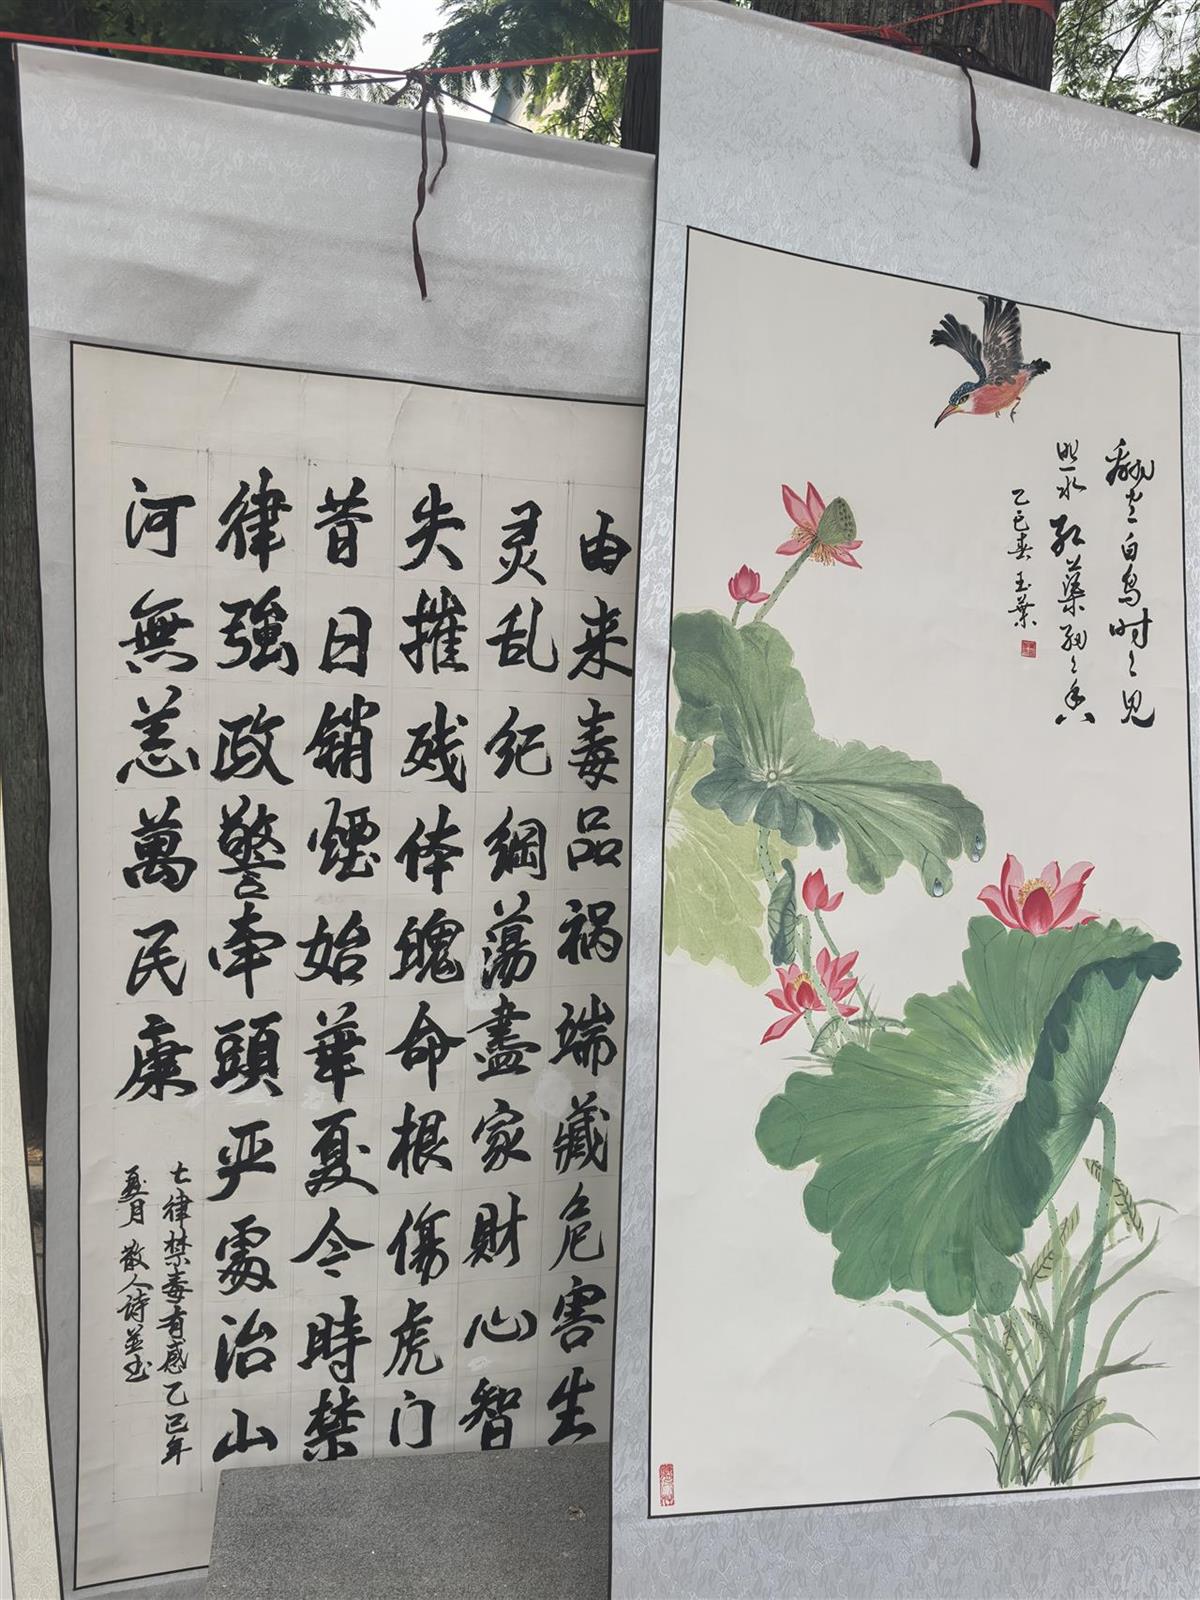 翻空白鸟时々见
照水红蕖细々香
乙巳春玉葉
由来毒品祸端藏危害生
灵乱纪綱蕩盡家財心智
失摧残体魄命根傷虎门
昔日銷煙始華夏今時禁
律強政警牽頭严處治山
河無恙萬民康
七律禁毒有感乙巳年
夏月散人诗並书